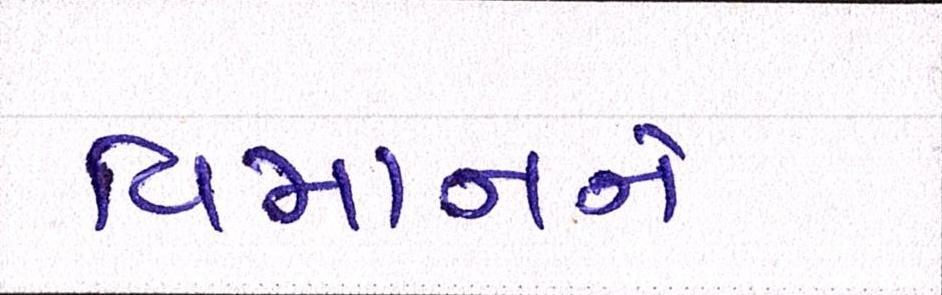 વિમાનને